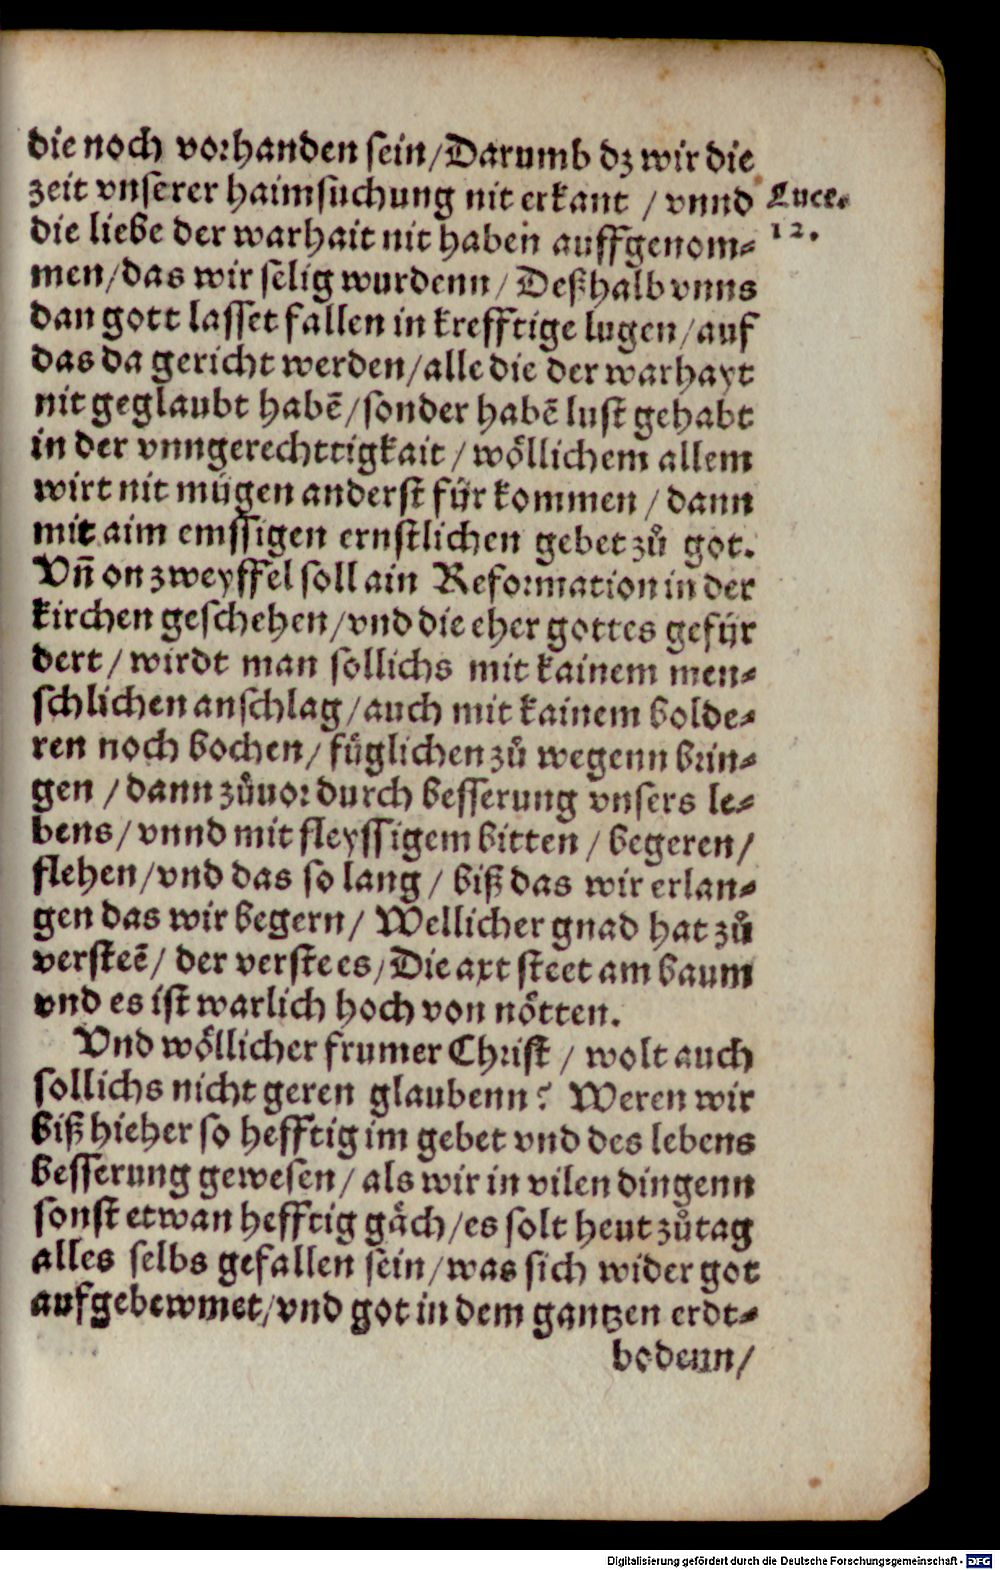 die noch vorhanden sein/Darumb dz wir die
zeit vnserer haimsuchung nit erkant / vnnd
Luce.
12.
die liebe der warhait nit haben auffgenom⸗
men/das wir selig wurdenn/ Deßhalb vnns
dan gott lasset fallen in krefftige lugen/auf
das da gericht werden/alle die der warhayt
nit geglaubt habē/sonder habē lust gehabt
in der vnngerechttigkait / wôllichem allem
wirt nit mügen anderst für kommen / dann
mit aim emssigen ernstlichen gebet zů got.
Vn̄ on zweyffel soll ain Reformation in der
kirchen geschehen/vnd die eher gottes gefür
dert/ wirdt man sollichs mit kainem men⸗
schlichen anschlag/auch mit kainem bolde⸗
ren noch bochen/ füglichen zů wegenn brin⸗
gen / dann zůuor durch besserung vnsers le⸗
bens/ vnnd mit fleyssigem bitten / begeren/
flehen/vnd das so lang / biß das wir erlan⸗
gen das wir begern/ Wellicher gnad hat zů
versteē/ der verstees/Die axt steet am baum
vnd es ist warlich hoch von nôtten.
Vnd wôllicher frumer Christ / wolt auch
sollichs nicht geren glaubenn? Weren wir
biß hieher so hefftig im gebet vnd des lebens
besserung gewesen/ als wir in vilen dingenn
sonst etwan hefftig gäch/es solt heut zůtag
alles selbs gefallen sein/was sich wider got
aufgebewmet/vnd got in dem gantzen erdt⸗
bodenn/
Digitalisierung gefördert durch die Deutsche Forschungsgemeinschaft - DFG